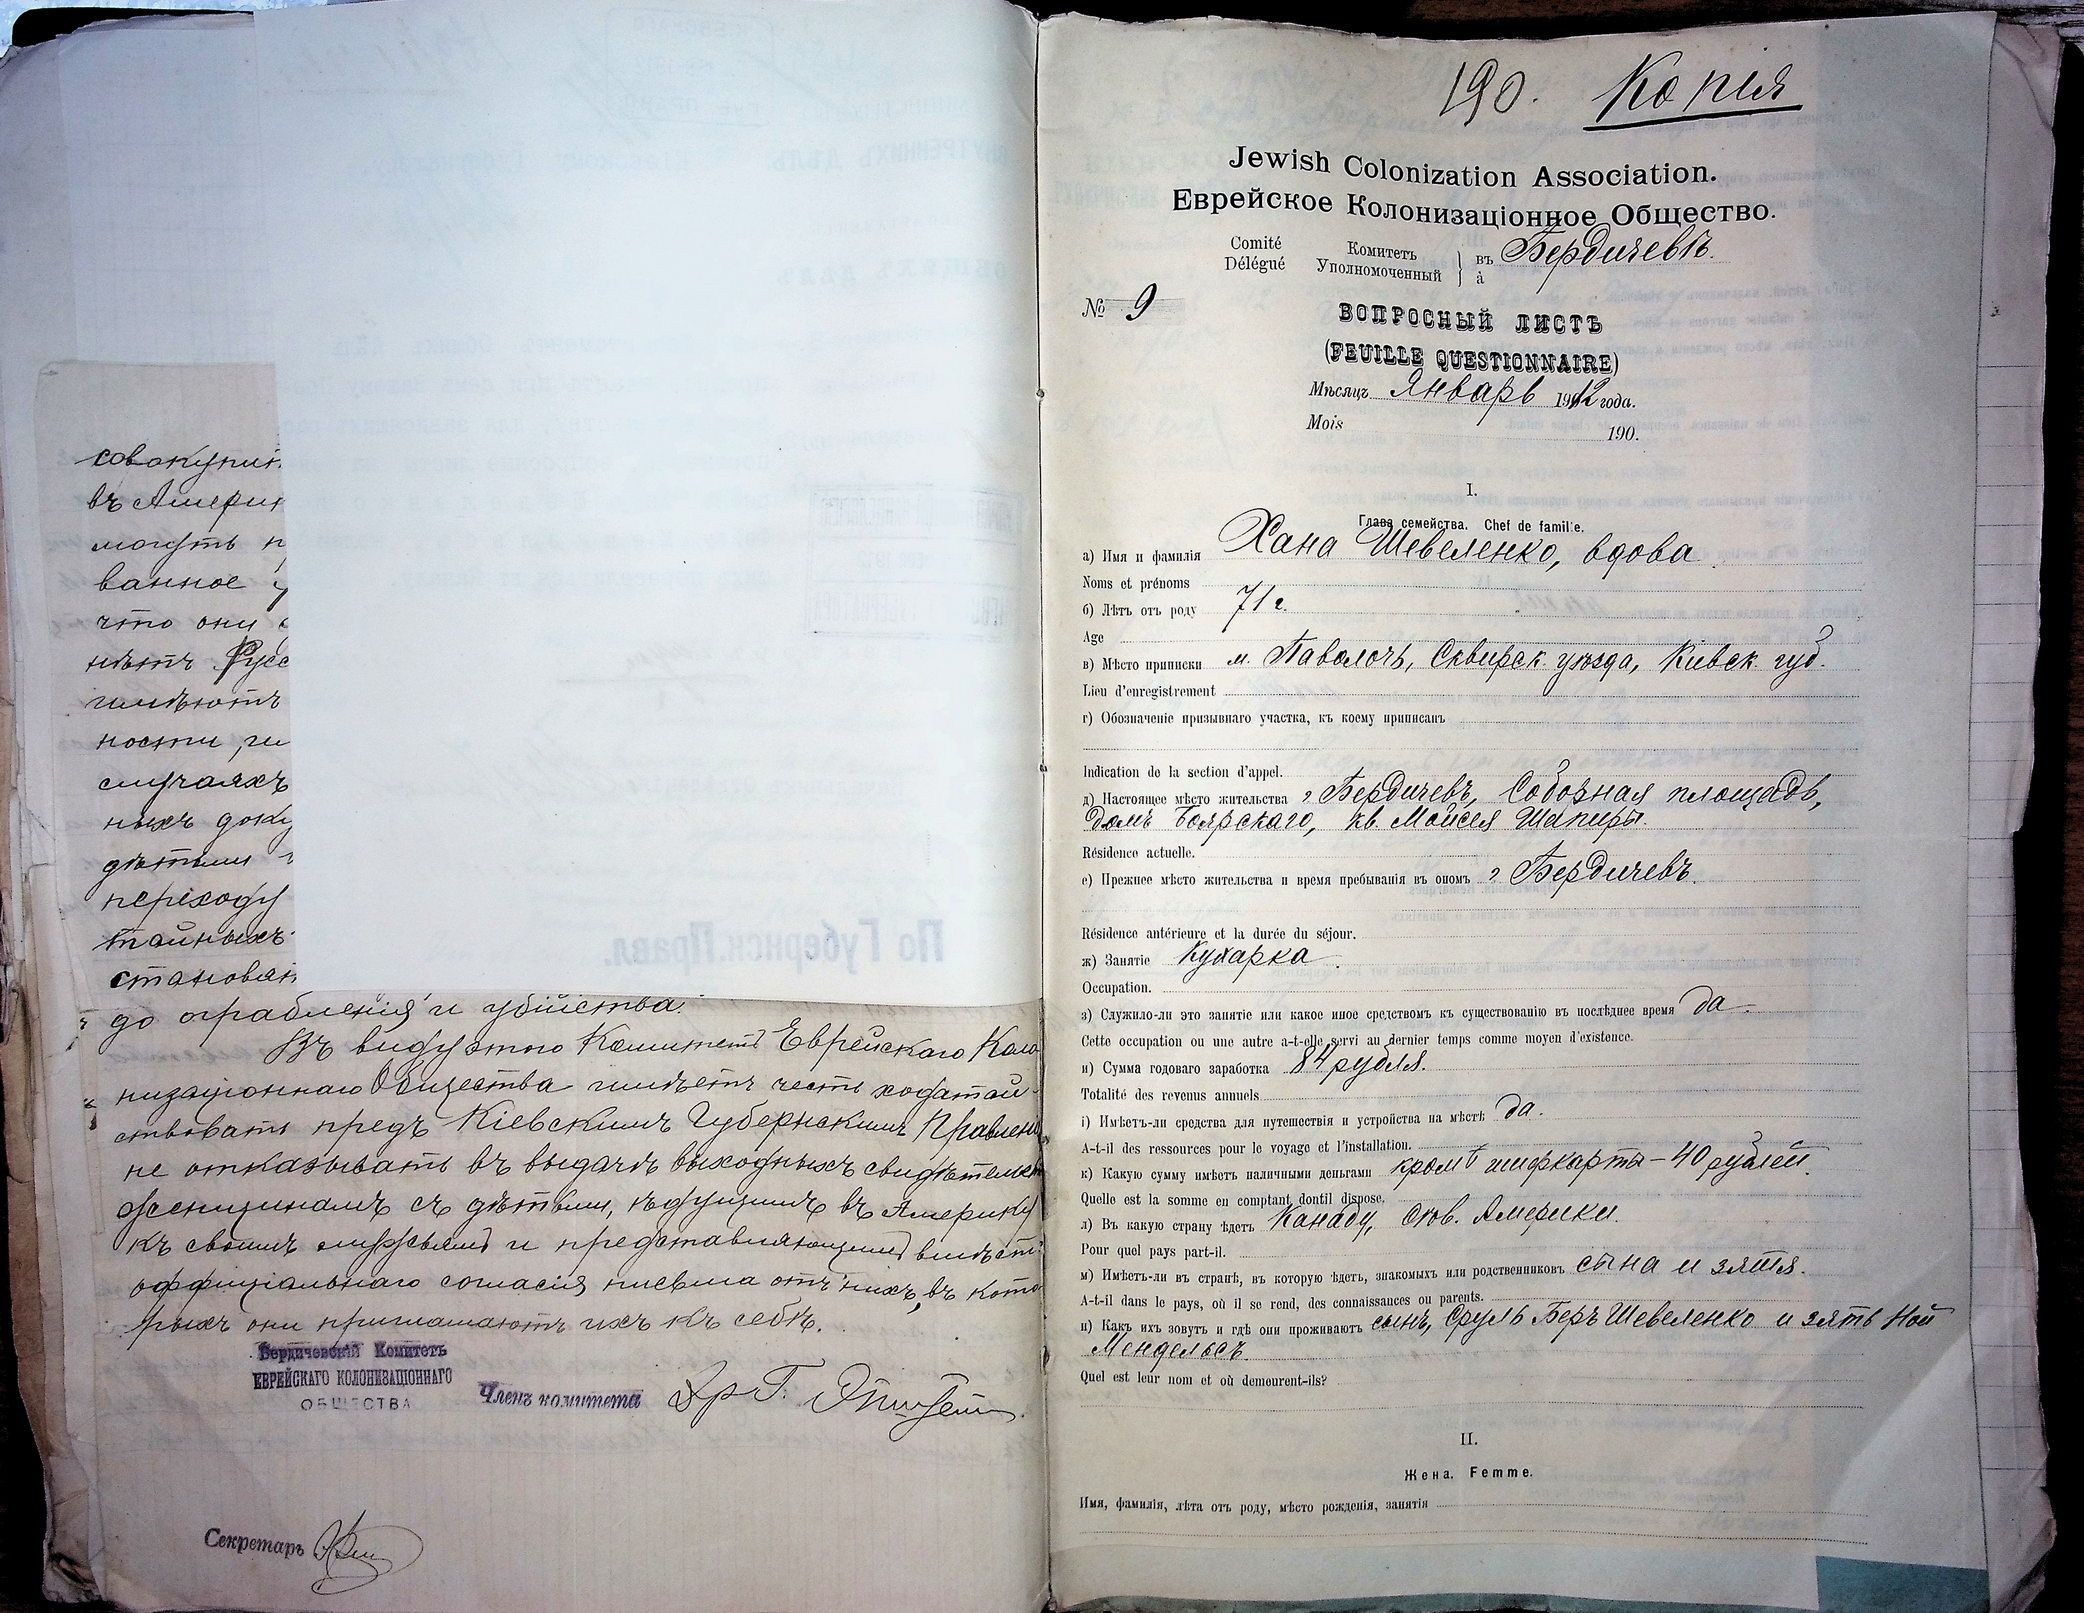 совокупи
въ Америк
могутъ п
ванное у
что они
нѣтъ Русс
имѣютъ
ности, ги
случаяхъ
ныхъ доку
дѣтьми
переходу
тайныхъ
становят
до ограбленія и убійства.
Въ виду этого Комитетъ Еврейскаго Коло
низаціоннаго Общества имѣетъ честь ходатай-
ствовать предъ Кіевскимъ Губернскимъ Правлені
не отказывать въ выдачѣ выходныхъ свидѣтельст
женщинамъ съ дѣтьми, ѣдущимъ въ Америку
къ своимъ мужьямъ и представляющимъ вмѣсто
оффиціальнаго согласія письма отъ нихъ, въ кото
рыхъ они приглашаютъ ихъ къ себѣ.
Бердичевскій Комитетъ
ЕВРЕЙСКАГО КОЛОНИЗАЦІОННАГО
ОБЩЕСТВА
Членъ комитета Др Г.
Секретарь
По Губернск. Правл.
190. Копія
Jewish Colonization Association.
Еврейское Колонизаціонное Общество.
Comité Комитетъ въ Бердичевѣ.
Délégué Уполномоченный à
№ 9
ВОПРОСНЫЙ ЛИСТЪ
(FEUILLE QUESTIONNAIRE)
Мѣсяцъ Январь 1912 года.
Mois 190.
I.
Глава семейства. Chef de famille.
а) Имя и фамилія Хана Шевеленко, вдова.
Noms et prénoms
б) Лѣтъ отъ роду 71 г.
Age
в) Мѣсто приписки м. Паволочь, Сквирск. уѣзда, Кіевск. губ.
Lieu d'enregistrement
г) Обозначеніе призывнаго участка, къ коему приписанъ
Indication de la section d'appel.
д) Настоящее мѣсто жительства г Бердичевъ, Соборная площадь,
домъ Боярскаго, кв. Мойсея Шапиры.
Résidence actuelle.
е) Прежнее мѣсто жительства и время пребыванія въ ономъ г Бердичевъ.
Résidence antérieure et la durée du séjour.
ж) Занятіе Кухарка.
Occupation.
з) Служило-ли это занятіе или какое иное средствомъ къ существованію въ послѣднее время да.
Cette occupation ou une autre a-t-elle servi au dernier temps comme moyen d'existence.
и) Сумма годоваго заработка 84 рубля.
Totalité des revenus annuels
і) Имѣетъ-ли средства для путешествія и устройства на мѣстѣ да.
A-t-il des ressources pour le voyage et l'installation.
к) Какую сумму имѣетъ наличными деньгами кромѣ шифкарты - 40 рублей.
Quelle est la somme en comptant dontil dispose.
л) Въ какую страну ѣдетъ Канаду, Сѣв. Америки.
Pour quel pays part-il.
м) Имѣетъ-ли въ странѣ, въ которую ѣдетъ, знакомыхъ или родственниковъ сына и зятя.
A-t-il dans le pays, où il se rend, des connaissances ou parents.
н) Какъ ихъ зовутъ и гдѣ они проживаютъ сынъ, Сруль Беръ Шевеленко и зять Ной
Мендельсъ.
Quel est leur nom et où demeurent-ils?
II.
Жена. Femme.
Имя, фамилія, лѣта отъ роду, мѣсто рожденія, занятія